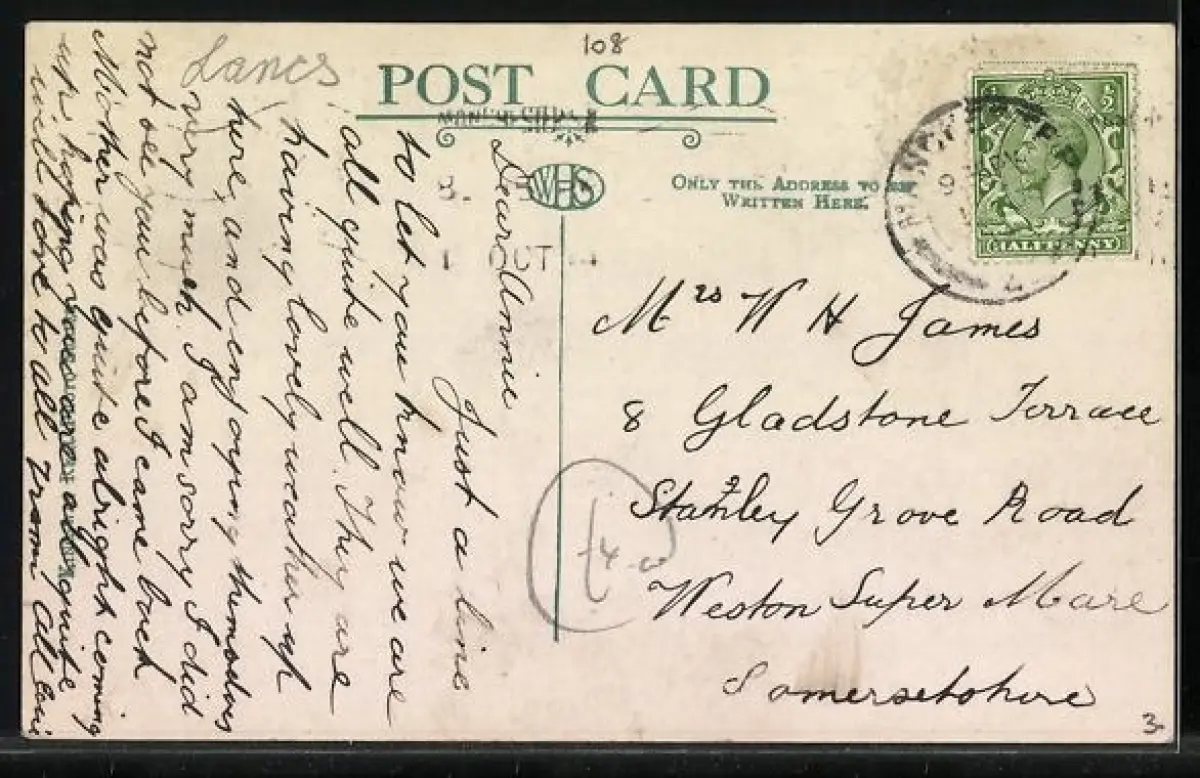 108
Lancs
POST CARD
WHS
ONLY THE ADDRESS TO BE
WRITTEN HERE.
OCT
HALFPENNY
Dear Annie
Just a line
to let you know we are
all quite well. They are
having lovely weather up
here, and enjoying themselves
very much. I am sorry I did
not see you before I came back
Mother was quite alright coming
up hoping you are all quite
well love to all from all
Mrs W H James
8 Gladstone Terrace
Stanley Grove Road
Weston Super Mare
Somersetshire
3